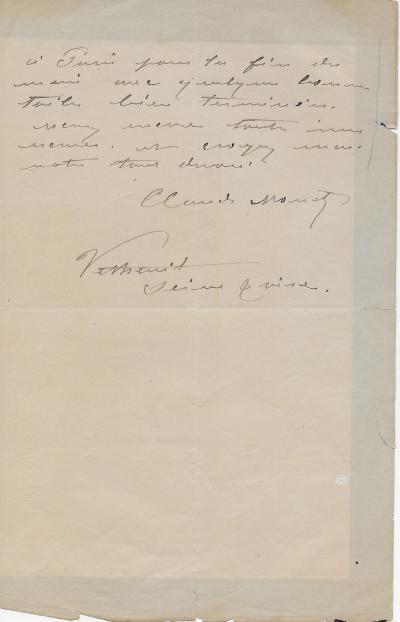 à Paris pour la fin du
mois avec quelques bonnes
toiles bien terminées.
toutes mes
et croyez moi
votre tout dévoué.
Claude Monet
Vétheuil
Seine & Oise.